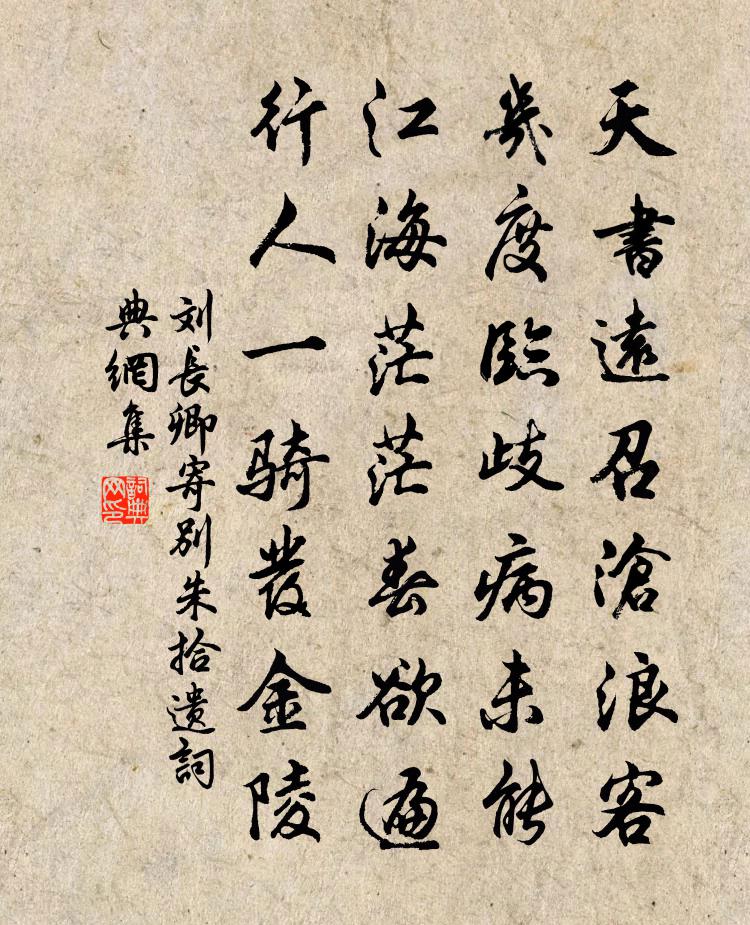 天書遠召滄浪客
幾度臨歧病未能
江海茫茫春欲遍
行人一騎發金陵
刘長卿寄别朱拾遗詞
典網集
詞典
网印